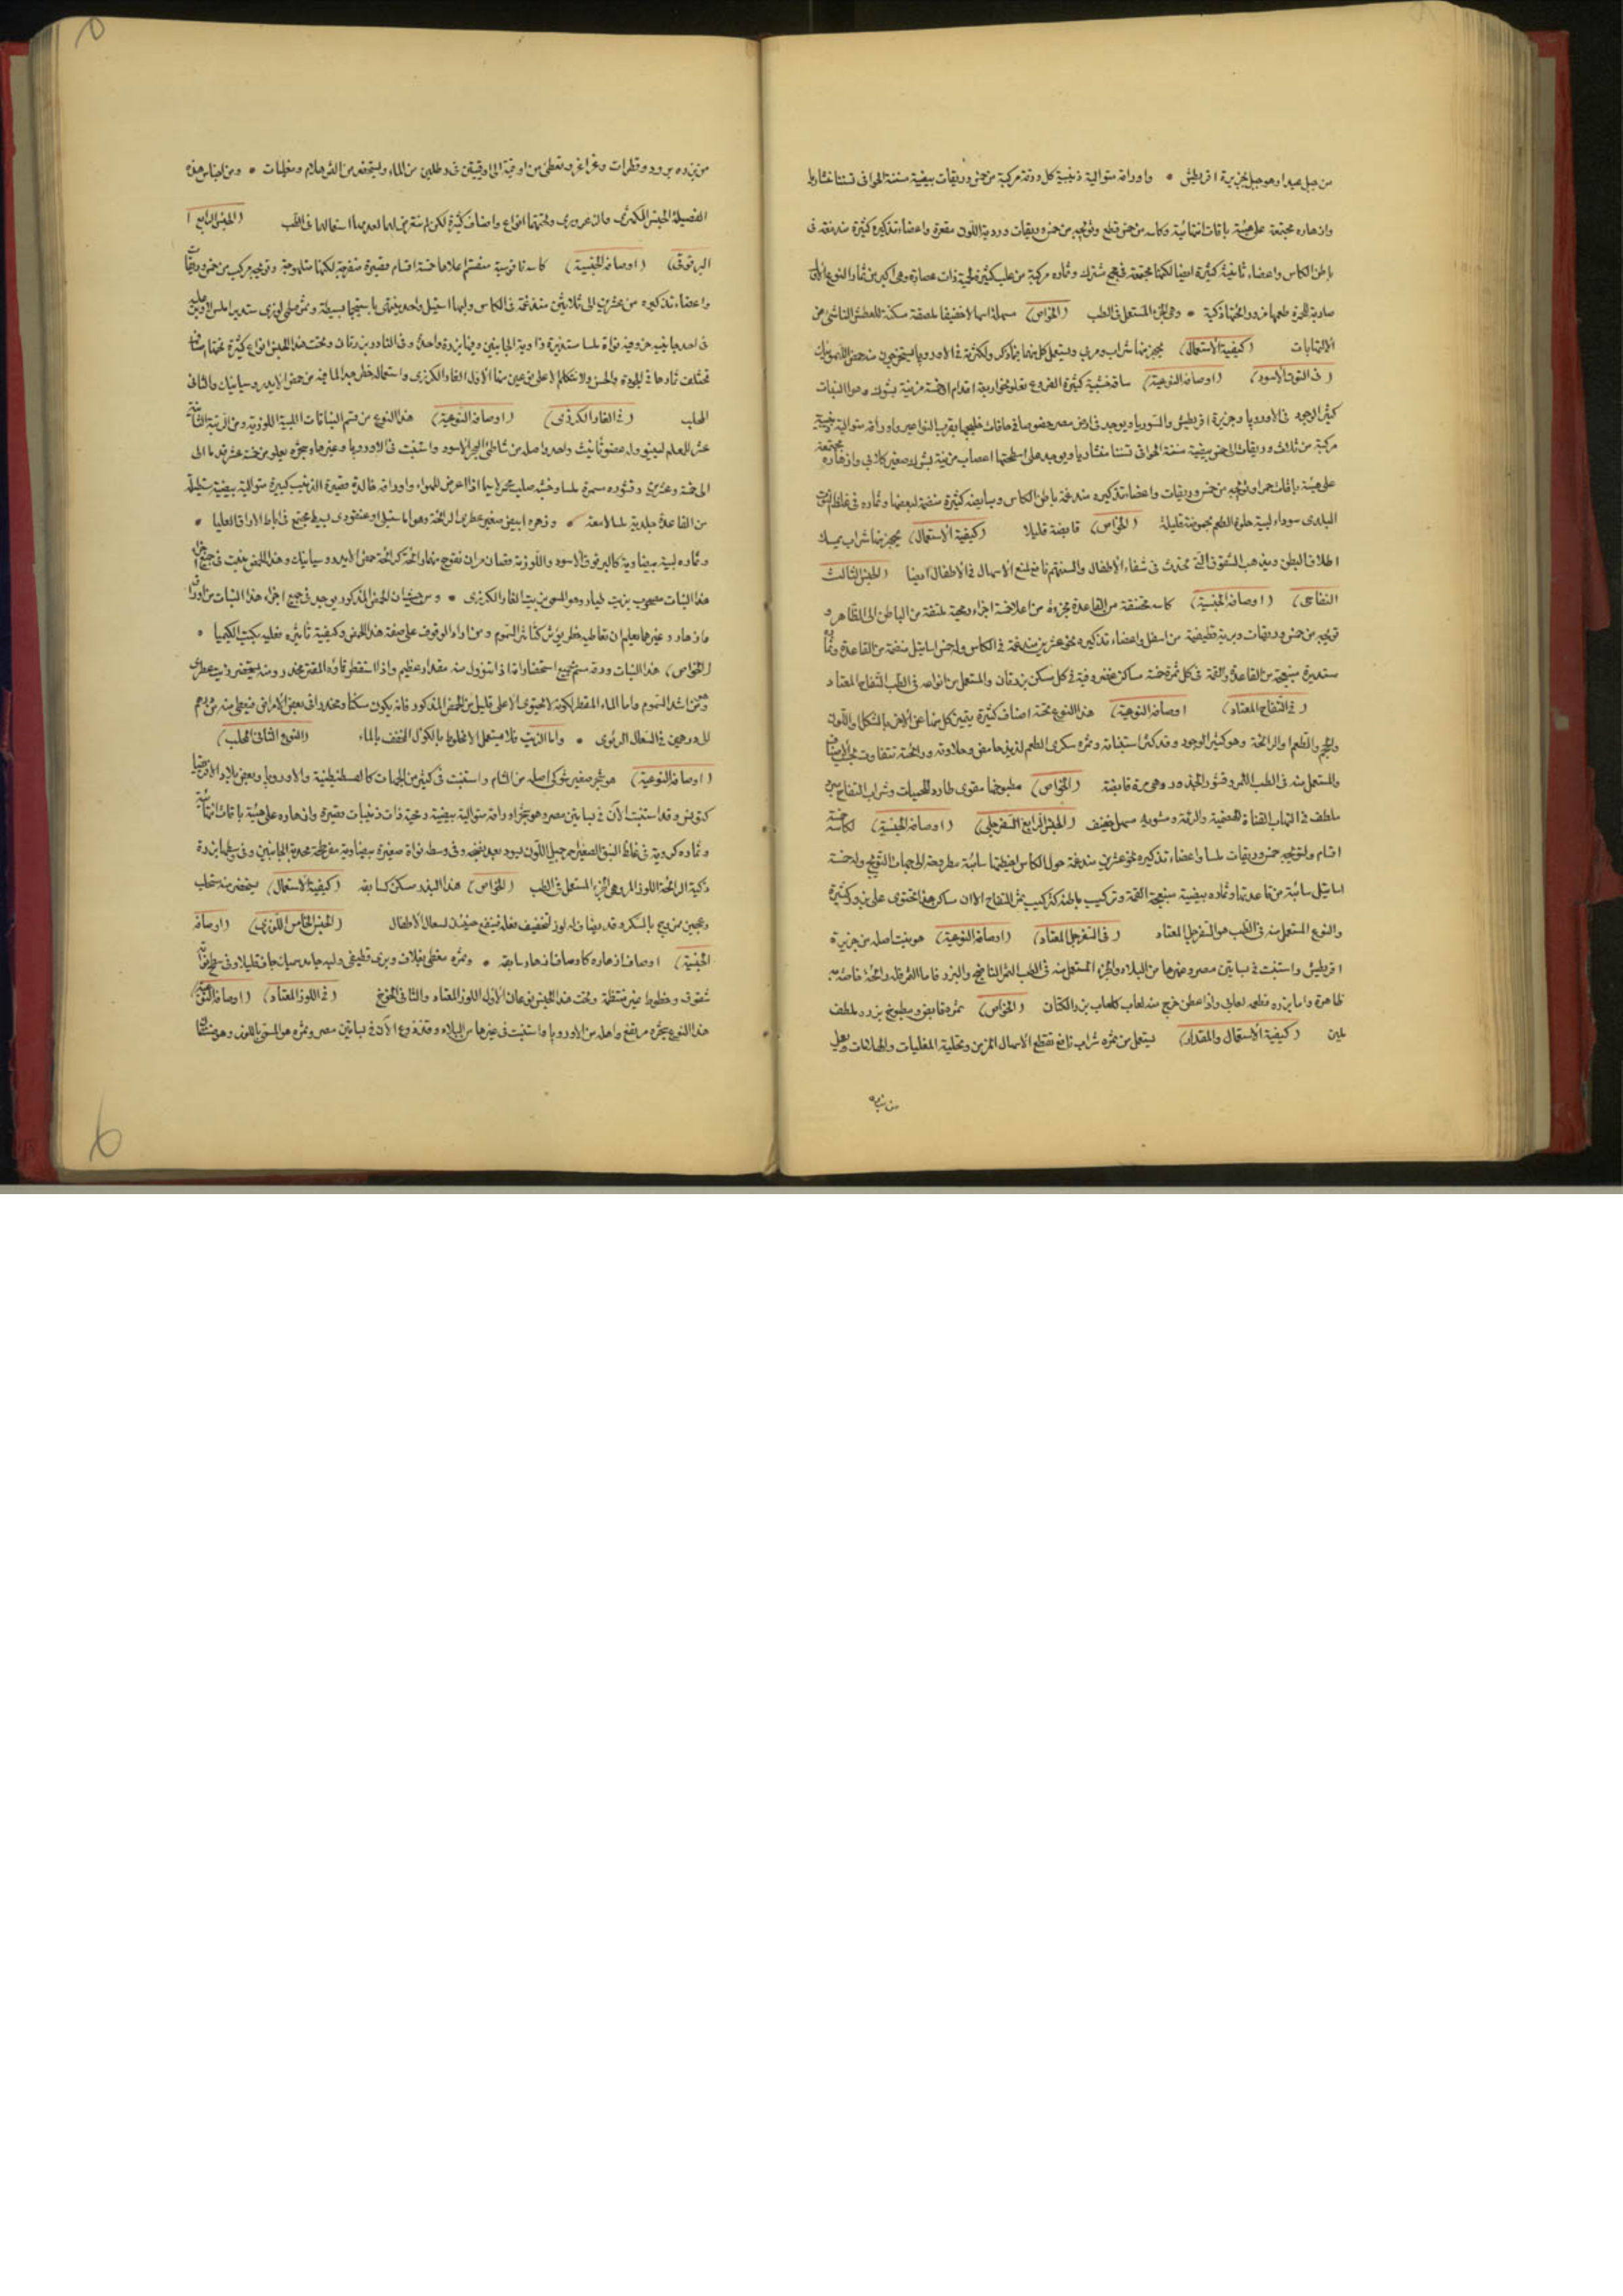 من جبل عيدا وهو جبل بجزيرة اقريطش • واوراقه متوالية ذنيبية كل ورقة مركبة من خمس وريقات بيضية مسننة الحوافى تسننا منشاريا
وازهاره مجتمعة على هيئة باقات انتهائية وكاسه من خمس قطع وتويجه من خمس وريقات وردية اللون مقعرة واعضاء تذكيره كثيرة مندغمة فى
باطن الكاس واعضاء تأنيثه كثيرة ايضا لكنها مجتمعة فى مجمع مشترك وثماره مركبة من علب كثيرة لحمية ذات عصارة وهى اكبر من ثمار النوع الاتى
ضاربة للحمرة طعمها مز ورائحتها ذكية • وهى الجزء المستعمل فى الطب (الخواص) مسهلة اسهالا خفيفا ملصقة مسكنة للعطش الناشئ من
الالتهابات (كيفية الاستعمال) يجهز منها شراب ومربى ويستعمل كل منهما فيما ذكر ولكثرته فى الاوروپا يستخرجون منه حمض الليمونيك
(فى التوت الاسود) (اوصافه النوعية) ساقه خشبية كثيرة الفروع تعلو نحو اربعة اقدام الى خمسة مزينة بشوك وهو النبات
كثير الوجود فى الاوروپا وجزيرة اقريطش والسوريا ويوجد فى ارض مصر خصوصا فى حافات خليجها بقرب النواعير واوراقه متوالية ذنيبية
مركبة من ثلاث وريقات الى خمس بيضية مسننة الحوافى تسننا منشاريا ويوجد على اسطحتها اعصاب مزينة بشوك صغير كلابى وازهاره مجتمعة
على هيئة باقات حمر وتويجه من خمس وريقات واعضاء تذكيره مندغمة بباطن الكاس ومبايضه كثيرة منضمة لبعضها وثماره فى غلظ التوت
البلدى سوداء لبية حلوة الطعم بحموضة قليلة (الخواص) قابضة قليلا (كيفية الاستعمال) يجهز منها شراب يمسك
اطلاق البطن ويذهب الشقوق التى تحدث فى شفاه الاطفال والسنتهم نافع لمنع الاسهال فى الاطفال ايضا (الجنس الثالث
التفاحى) (اوصافه الجنسية) كاسه مختنقة من القاعدة مجزوءة من اعلا خمسة اجزاء رمحية ملتفة من الباطن الى الظاهر و
تويجه من خمس وريقات وبرية قطيفية من اسفل واعضاء تذكيره نحو عشرين مندغمة فى الكاس وله خمس اساتيل منضمة من القاعدة وثماره
مستديرة منبعجة من القاعدة والقمة فى كل ثمرة خمسة مساكن غضروفية فى كل مسكن بزرتان والمستعمل من انواعه فى الطب التفاح المعتاد
(فى التفاح المعتاد) اوصافه النوعية) هذا النوع تحته اصناف كثيرة يتميز كل منها عن الاخر بالشكل واللون
والحجم والطعم والرائحة وهو كثير الوجود وقد كثر استنباته وثمره سكرى الطعم لذيذ حامض وحلاوته ورائحته تتفاوت بحسب الاصناف
والمستعمل منه فى الطب الثمر وقشور الجذور وهى مرة قابضة (الخواص) مطبوخها مقوى طارد للحميات وشراب التفاح مبرد
ملطف فى التهاب القناة الهضمية والرئة ومشويه مسهل خفيف (الجنس الرابع السفرجلى) (اوصافه الجنسية) لكاسه خمسة
اقسام ولتويجه خمس وريقات ملسا واعضاء تذكيره نحو عشرين مندغمة حول الكاس لخيطها سائبة مطروحة الى جهات التويج وله خمسة
اساتيل سائبة من قاعدتها وثماره بيضية منبعجة القمة وتركيب باطنه كتركيب ثمر التفاح الا ان مساكن هذا تحتوى على بزور كثيرة
والنوع المستعمل منه فى الطب هو السفرجل المعتاد (فى السفرجل المعتاد) (اوصافه النوعية) هو نبت اصله من جزيرة
اقريطش واستنبت فى بساتين مصر وغيرها من البلاد والجزء المستعمل منه فى الطب الثمر الناضج والبزر فاما الثمر فله رائحة خاصة به
ظاهرة واما بزره فطعمه لعابى واذا عطن خرج منه لعاب كلعاب بزر الكتان (الخواص) ثمره قابض ومطبوخ بزره ملطف
ملين (كيفية الاستعمال والمقدار) يستعمل من ثمره شراب نافع لقطع الاسهال المزمن وتحلية المغليات والهلامات ويعمل
من بزره
من بزره برود وقطرات وغراغر ويعطى من اوقية الى اوقيتين فى رطلين من الماء ويستحضر من الثمر هلام ومغليات • ومن اجناس هذه
الفصيلة الجنس الكمثرى والزعرورى وتحتهما انواع واصناف كثيرة لكن لم نتعرض لهما لعدم استعمالهما فى الطب (الجنس الرابع
البرقوقى) (اوصافه الجنسية) كاسه ناقوسية منقسم اعلاها خمسة اقسام قصيرة منفرجة وتويجه مركب من خمس وريقات
واعضاء تذكيره من عشرين الى ثلاثين مندغمة فى الكاس ولها استيل واحد ينتهى باستيجما بسيطة وثمره لحمى لوزى مستدير املس
فى احد جانبيه حز وفيه نواة ملسا مستديرة زاوية الجانبين وفيها بزرة واحدة وفى النادر بزرتان وتحت هذا الجنس انواع كثيرة تحتها اصناف
تختلف ثمارها فى الجودة والحسن ولا نتكلم الا على نوعين منها الاول الغار الكرزى واستعماله خطر جدا لما فيه من حمض الايدروسيانيك والثانى
المحلب (فى الغار الكرزى) (اوصافه النوعية) هذا النوع من قسم النباتات اللبية اللوزية ومن الرتبة الثانية
عشر للمعلم لينيو وله عضو تأنيث واحد واصله من شاطئ البحر الاسود واستنبت فى الاوروپا وغيرها وشجره يعلو من خمسة عشر قدما الى
الى خمسة وعشرين وقشوره سمرة ملسا وخشبه صلب محمر لا سيما اذا عرض للهواء واوراقه خالدة قصيرة الذنيب كبيرة متوالية بيضية مستطيلة
من القاعدة جلدية ملسا لامعة • وزهره ابيض صغير عطرى الرائحة وهو اما سنبلى او عنقودى بسيط مجتمع فى اباط الاوراق العليا •
وثماره لبية بيضاوية كالبرقوق الاسود واللوزية فقصان مران تفوح منها رائحة كرائحة حمض الايدروسيانيك وهذا الحمض ينبت فى جميع اجزاء
هذا النبات مصحوب بزيت طيار وهو المسمى بزيت الغار الكرزى • ومن حيث ان الحمض المذكور يوجد فى جميع اجزاء هذا النبات من اوراق
وازهار وغيرهما يعلم ان تعاطيه بطريق شر كتأثير السموم ومن اراد الوقوف على صفة هذا الحمض وكيفية تأثيره فعليه بكتب الكيميا •
(الخواص) هذا النبات ورقه سم بجميع استحضاراته اذا استعمل منه مقدار عظيم واذا استقطر فماؤه المقطر مخدر ومنه يستحضر زيت عطرى
وهو من اشد السموم واما الماء المقطر لكونه لا يحتوى الا على قليل من الحمض المذكور فانه يكون مسكنا ومخدرا فى بعض الامراض فيعطى منه من درهم
الى درهمين فى السعال الربوى • واما الزيت فلا يستعمل الا مخلوط بالكؤل المخفف بالماء (النوع الثانى المحلب)
(اوصافه النوعية) هو شجر صغير شوكى اصله من الشام واستنبت فى كثير من الجهات كالقسطنطينية والاوروپا وبعض بلاد الافريقيا
كتونس وقد استنبت الان فى بساتين مصر وهو شجر اوراقه متوالية بيضية رمحية ذات ذنيبات قصيرة وازهاره على هيئة باقات انتهائية
وثماره كروية فى غلظ النبق الصغير احمر جميل اللون يسود بعد نضجه وفى وسطه نواة صغيرة بيضاوية مفرطحة محدبة الجانبين وفى وسطها بزرة
ذكية الرائحة اللوز المر وهى الجزء المستعمل فى الطب (الخواص) هذا البزر مسكن كسابقه (كيفية الاستعمال) يستحضر منه مستحلب
وعجين ممزوج بالسكر وقد يضاف له لوز لتخفيف فعله فينفع حينئذ لسعال الاطفال (الجنس الخامس اللوزى) (اوصافه
الجنسية) اوصاف ازهاره كاوصاف ازهار سابقه • وثمره مغطى بغلاف وبرى قطيفى ولبه جامد سميك جاف قليلا وفى سطح نواته
شقوق وخطوط غير منتظمة وتحت هذا الجنس نوعان الاول اللوز المعتاد والثانى الخوخ (فى اللوز المعتاد) (اوصافه النوعية)
هذا النوع شجره مرتفع واصله من الاوروپا واستنبت فى غيرها من البلاد وقد زرع الان فى بساتين مصر وثمره هو المسمى باللوز وهو صنفان